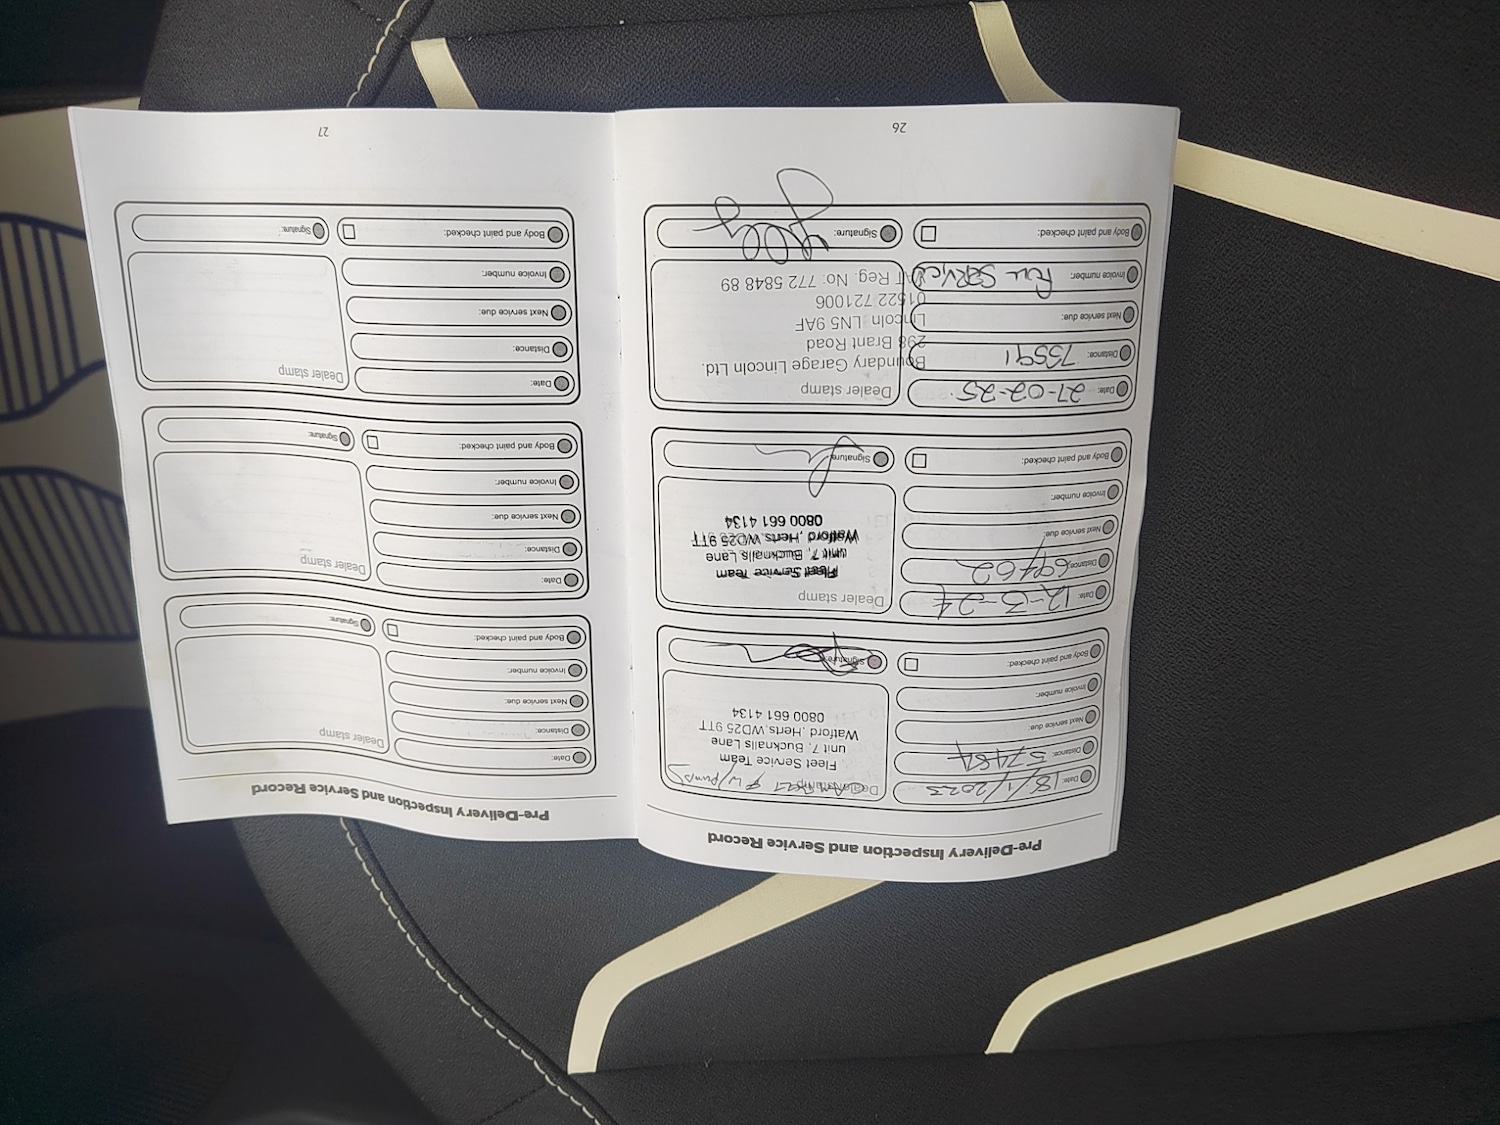 Pre-Delivery Inspection and Service Record
Date: 18/1/2023
Distance: 57484
Next service due:
Invoice number:
Body and paint checked:
Dealer stamp
Fleet Service Team
unit 7, Bucknalls Lane
Watford, Herts, WD25 9TT
0800 661 4134
Signature:
Date: 12-3-24
Distance: 69462
Next service due:
Invoice number:
Body and paint checked:
Dealer stamp
Fleet Service Team
unit 7, Bucknalls Lane
Watford, Herts, WD25 9TT
0800 661 4134
Signature:
Date: 27-02-25
Distance: 73591
Next service due:
Invoice number: FULL SERVICE
Body and paint checked:
Dealer stamp
Boundary Garage Lincoln Ltd.
298 Brant Road
Lincoln LN5 9AF
01522 721006
VAT Reg. No: 772 5848 89
Signature:
26
Pre-Delivery Inspection and Service Record
Date:
Distance:
Next service due:
Invoice number:
Body and paint checked:
Dealer stamp
Signature:
Date:
Distance:
Next service due:
Invoice number:
Body and paint checked:
Dealer stamp
Signature:
Date:
Distance:
Next service due:
Invoice number:
Body and paint checked:
Dealer stamp
Signature:
27